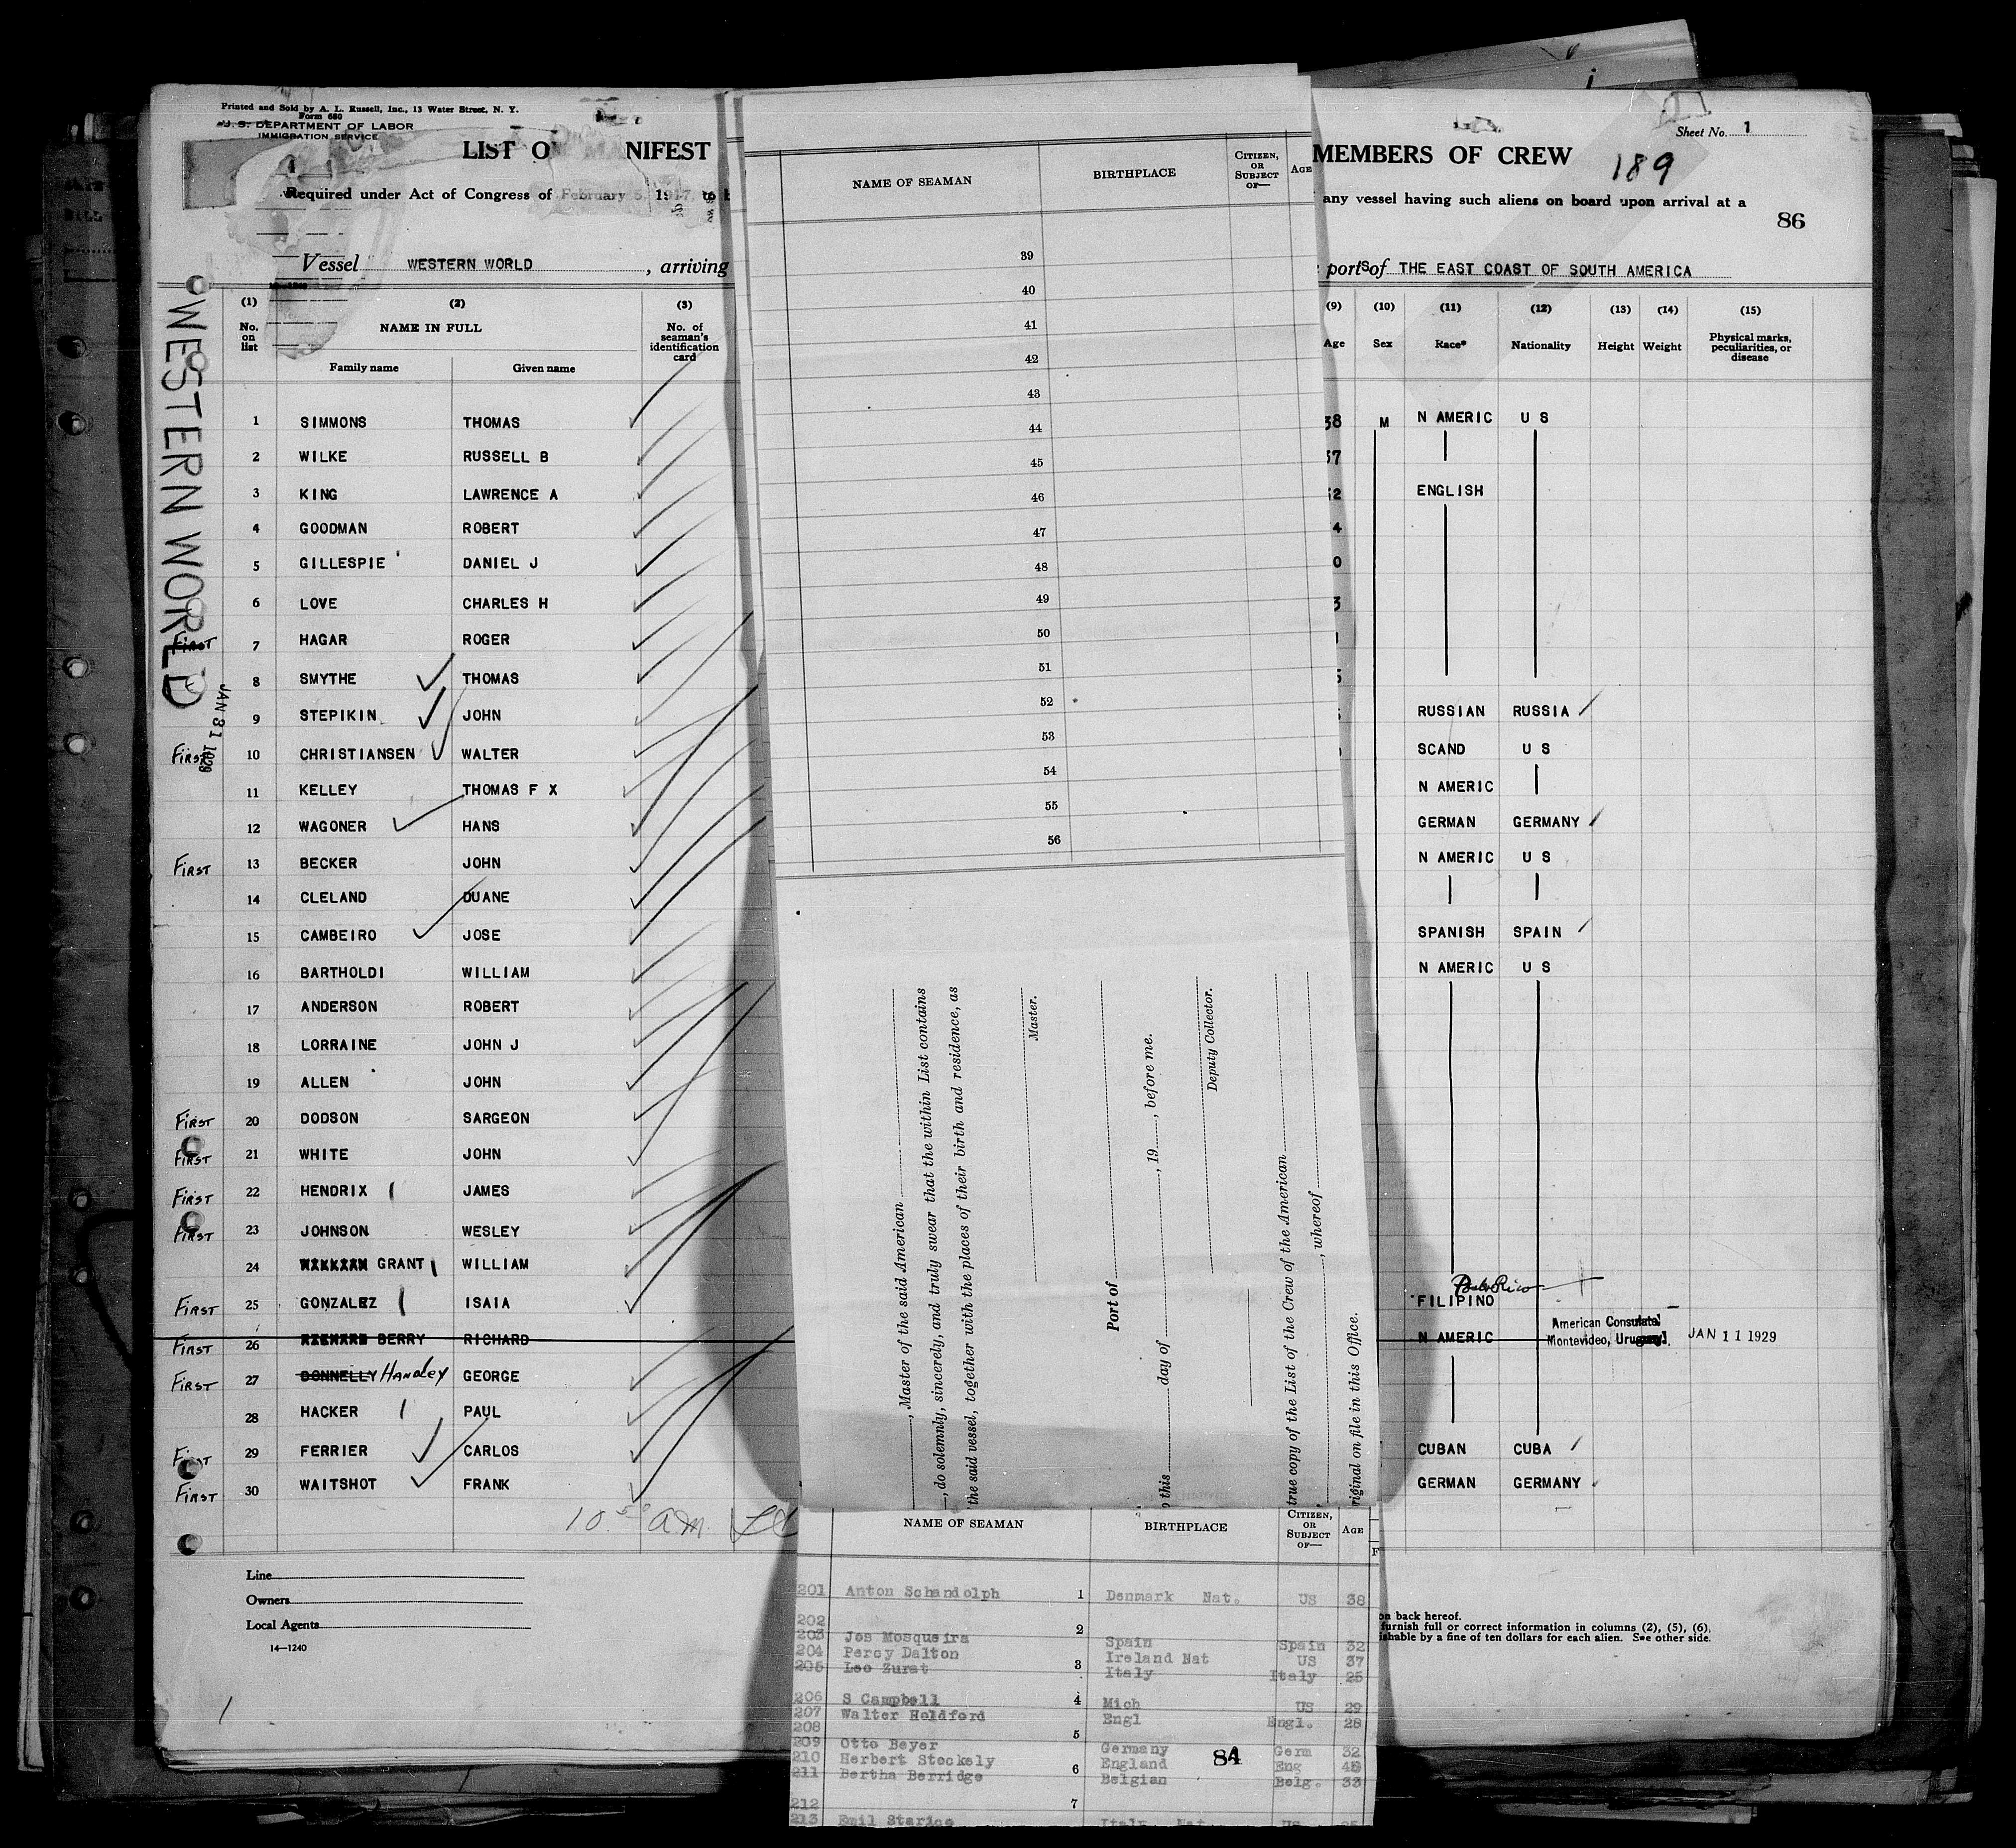 Printed and Sold by A. L. Russell, Inc., 13 Water Street, N. Y.
Form 680
U. S. DEPARTMENT OF LABOR
IMMIGRATION SERVICE
LIST O NIFEST
Required under Act of Congress of February 5, 1917, to b
Vessel WESTERN WORLD , arriving
WESTERN WORLD
JAN 31 1929
(1) (2) (3)
No. on list NAME IN FULL No. of seaman's identification card
Family name Given name
1 SIMMONS THOMAS
2 WILKE RUSSELL B
3 KING LAWRENCE A
4 GOODMAN ROBERT
5 GILLESPIE DANIEL J
6 LOVE CHARLES H
First 7 HAGAR ROGER
8 SMYTHE THOMAS
9 STEPIKIN JOHN
First 10 CHRISTIANSEN WALTER
11 KELLEY THOMAS F X
12 WAGONER HANS
First 13 BECKER JOHN
14 CLELAND DUANE
15 CAMBEIRO JOSE
16 BARTHOLDI WILLIAM
17 ANDERSON ROBERT
18 LORRAINE JOHN J
19 ALLEN JOHN
First 20 DODSON SARGEON
First 21 WHITE JOHN
First 22 HENDRIX JAMES
First 23 JOHNSON WESLEY
24 GRANT WILLIAM
First 25 GONZALEZ ISAIA
First 26 BERRY RICHARD
First 27 DONNELLY Handley GEORGE
28 HACKER PAUL
First 29 FERRIER CARLOS
First 30 WAITSHOT FRANK
10 50 am.
Line
Owners
Local Agents
14—1240
NAME OF SEAMAN BIRTHPLACE CITIZEN, OR SUBJECT OF— AGE
39
40
41
42
43
44
45
46
47
48
49
50
51
52
53
54
55
56
, Master of the said American
, do solemnly, sincerely, and truly swear that the within List contains
the said vessel, together with the places of their birth and residence, as
Master.
Port of
this day of , 19 , before me.
Deputy Collector.
true copy of the List of the Crew of the American
, whereof
riginal on file in this Office.
NAME OF SEAMAN BIRTHPLACE CITIZEN, OR SUBJECT OF— AGE
201 Anton Schandolph 1 Denmark Nat. US 38
202 2
203 Jos Mosqueira Spain Spain 32
204 Percy Dalton Ireland Nat US 37
205 Leo Zurat 3 Italy Italy 25
206 S Campbell 4 Mich US 29
207 Walter Holdford Engl Engl. 28
208 5
209 Otto Beyer Germany Germ 32
210 Herbert Stockely 6 England Eng
211 Bertha Berridge Belgian Belg. 33
84
212 7
213 Emil Starico Italy Nat US
Sheet No. 1
MEMBERS OF CREW
189
any vessel having such aliens on board upon arrival at a
86
ports of THE EAST COAST OF SOUTH AMERICA
(9) (10) (11) (12) (13) (14) (15)
Age Sex Race* Nationality Height Weight Physical marks, peculiarities, or disease
38 M N AMERIC U S
37
ENGLISH
RUSSIAN RUSSIA
SCAND U S
N AMERIC
GERMAN GERMANY
N AMERIC U S
SPANISH SPAIN
N AMERIC U S
Porto Rico
FILIPINO
N AMERIC American Consulate Montevideo, Uruguay. JAN 11 1929
CUBAN CUBA
GERMAN GERMANY
on back hereof.
furnish full or correct information in columns (2), (5), (6),
ishable by a fine of ten dollars for each alien. See other side.